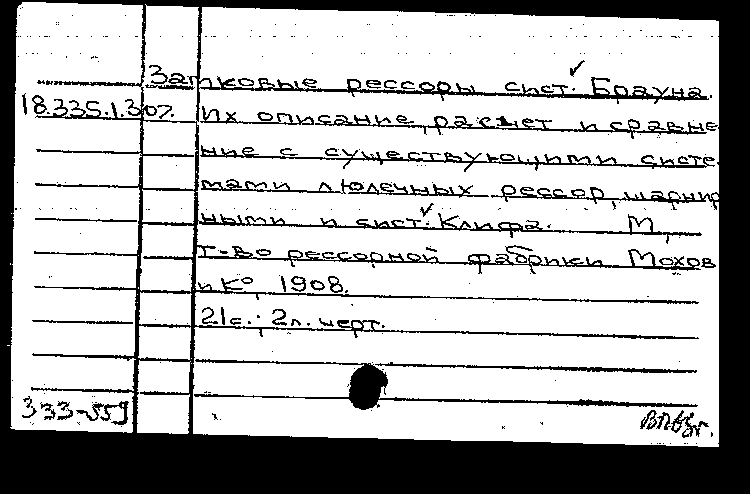 Затковые рессоры сист. Брауна.
18.335.1.307. Их описание, расчет и сравне-
ние с существующими систе-
мами люлечных рессор, шарнир
ными и сист. Клифа. М.,
т-во рессорной фабрики Мохов
и К°, 1908.
21с.; 2л. черт.
333-559